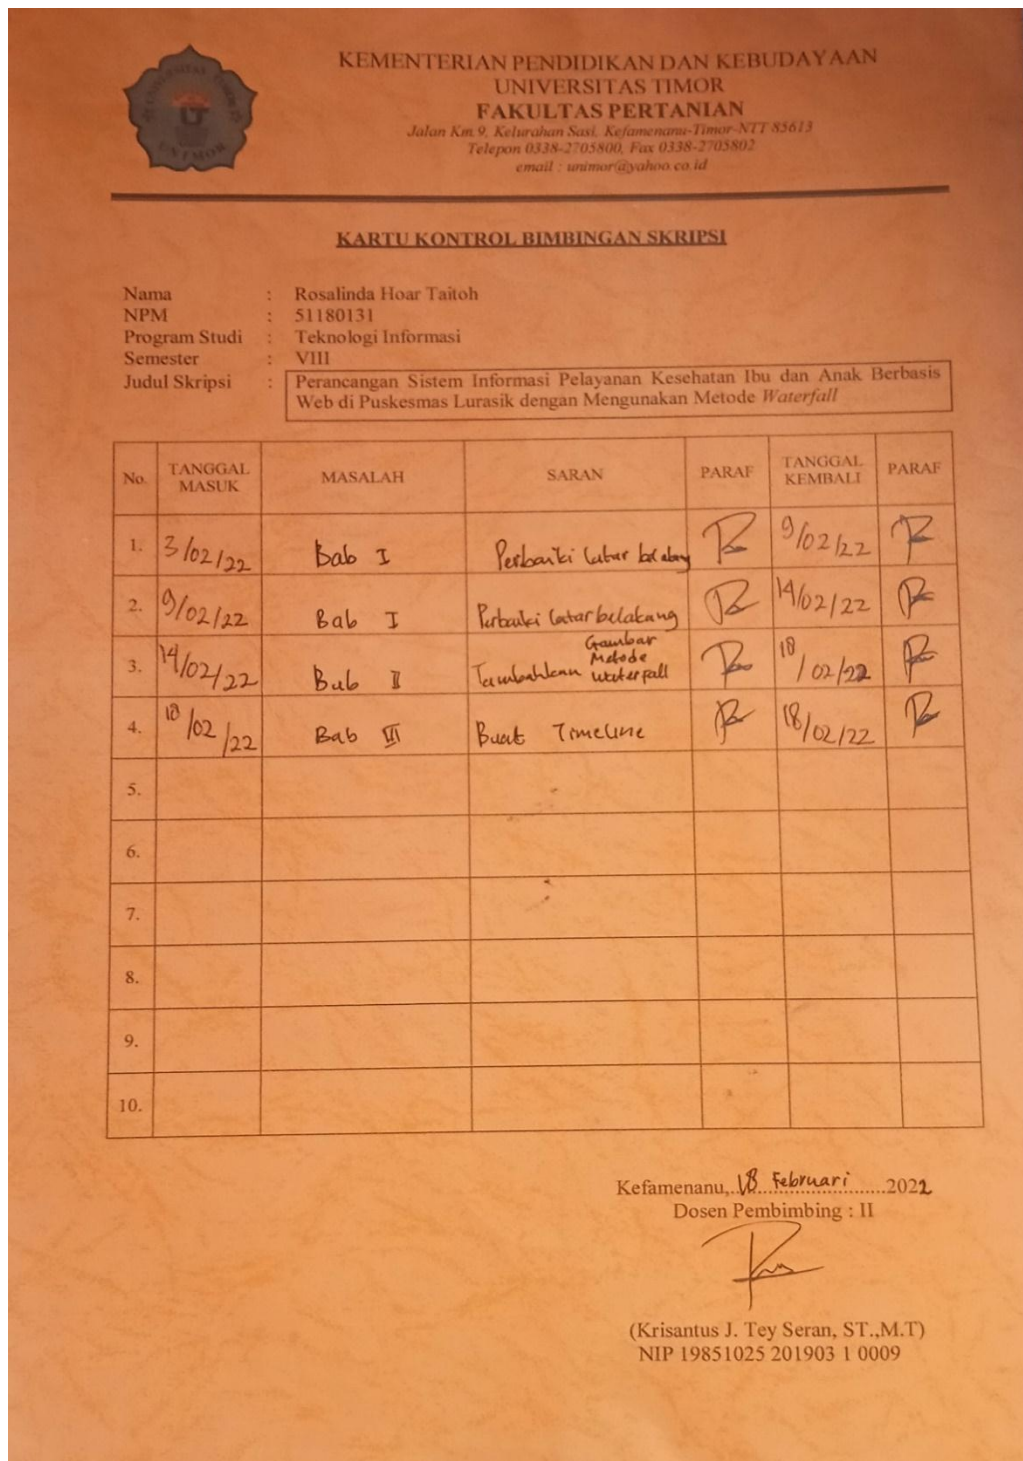 KEMENTERIAN PENDIDIKAN DAN KEBUDAYAAN
UNIVERSITAS TIMOR
FAKULTAS PERTANIAN
Jalan Km 9, Kelurahan Sasi, Kefamenanu-Timor-NTT 85613
Telepon 0338-2705800, Fax 0338-2705802
email : unimor@yahoo.co.id
UNIMOR
KARTU KONTROL BIMBINGAN SKRIPSI
Nama : Rosalinda Hoar Taitoh
NPM : 51180131
Program Studi : Teknologi Informasi
Semester : VIII
Judul Skripsi : Perancangan Sistem Informasi Pelayanan Kesehatan Ibu dan Anak Berbasis
Web di Puskesmas Lurasik dengan Mengunakan Metode Waterfall
No. TANGGAL MASUK MASALAH SARAN PARAF TANGGAL KEMBALI PARAF
1. 3/02/22 Bab I Perbaiki latar belakang 9/02/22
2. 9/02/22 Bab I Perbaiki latar belakang 14/02/22
3. 14/02/22 Bab II Tambahkan Gambar Metode Waterfall 18/02/22
4. 18/02/22 Bab III Buat Timeline 18/02/22
5.
6.
7.
8.
9.
10.
Kefamenanu, 18 Februari 2022
Dosen Pembimbing : II
(Krisantus J. Tey Seran, ST.,M.T)
NIP 19851025 201903 1 0009